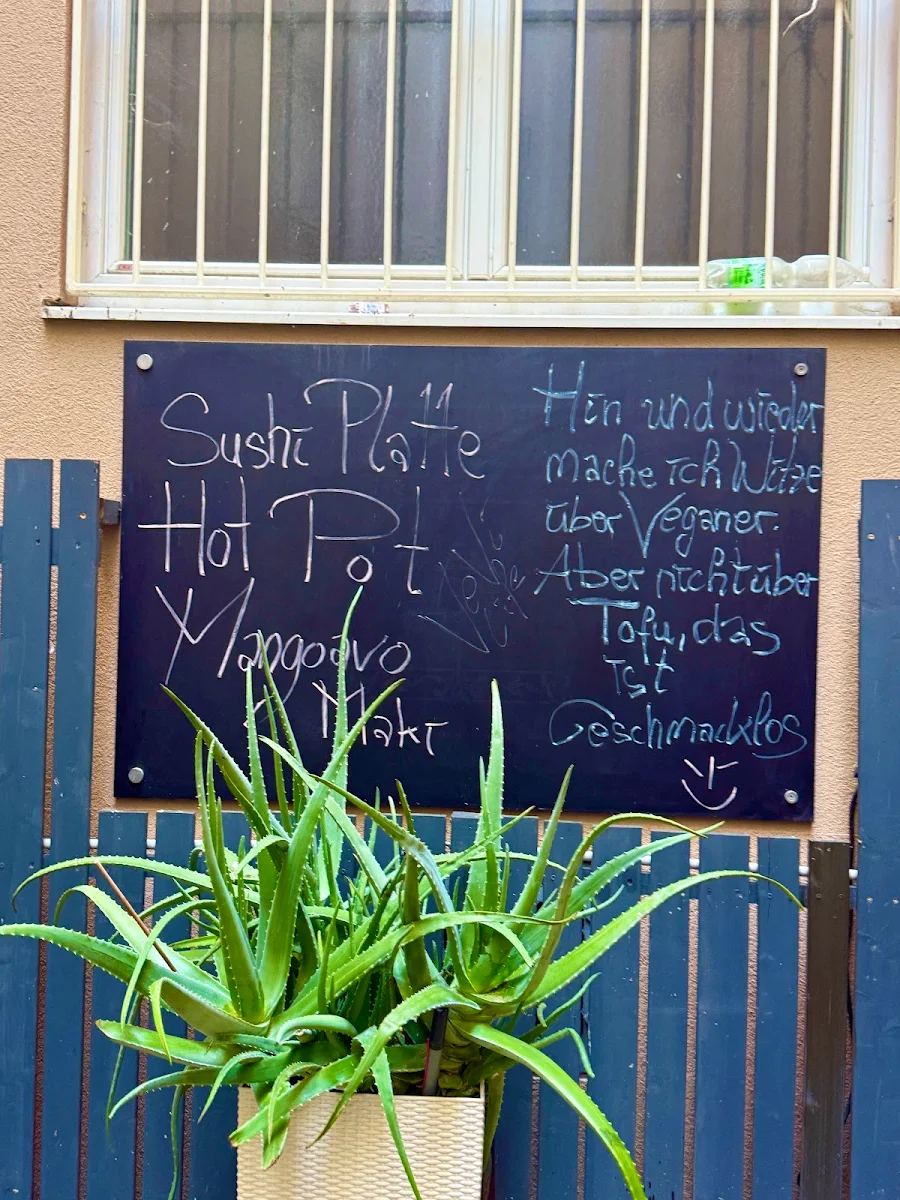 Sushi Platte
Hot Pot
Mangoavo
Maki
Hin und wieder
mache ich Witze
über Veganer.
Aber nicht über
Tofu, das
ist
Geschmacklos